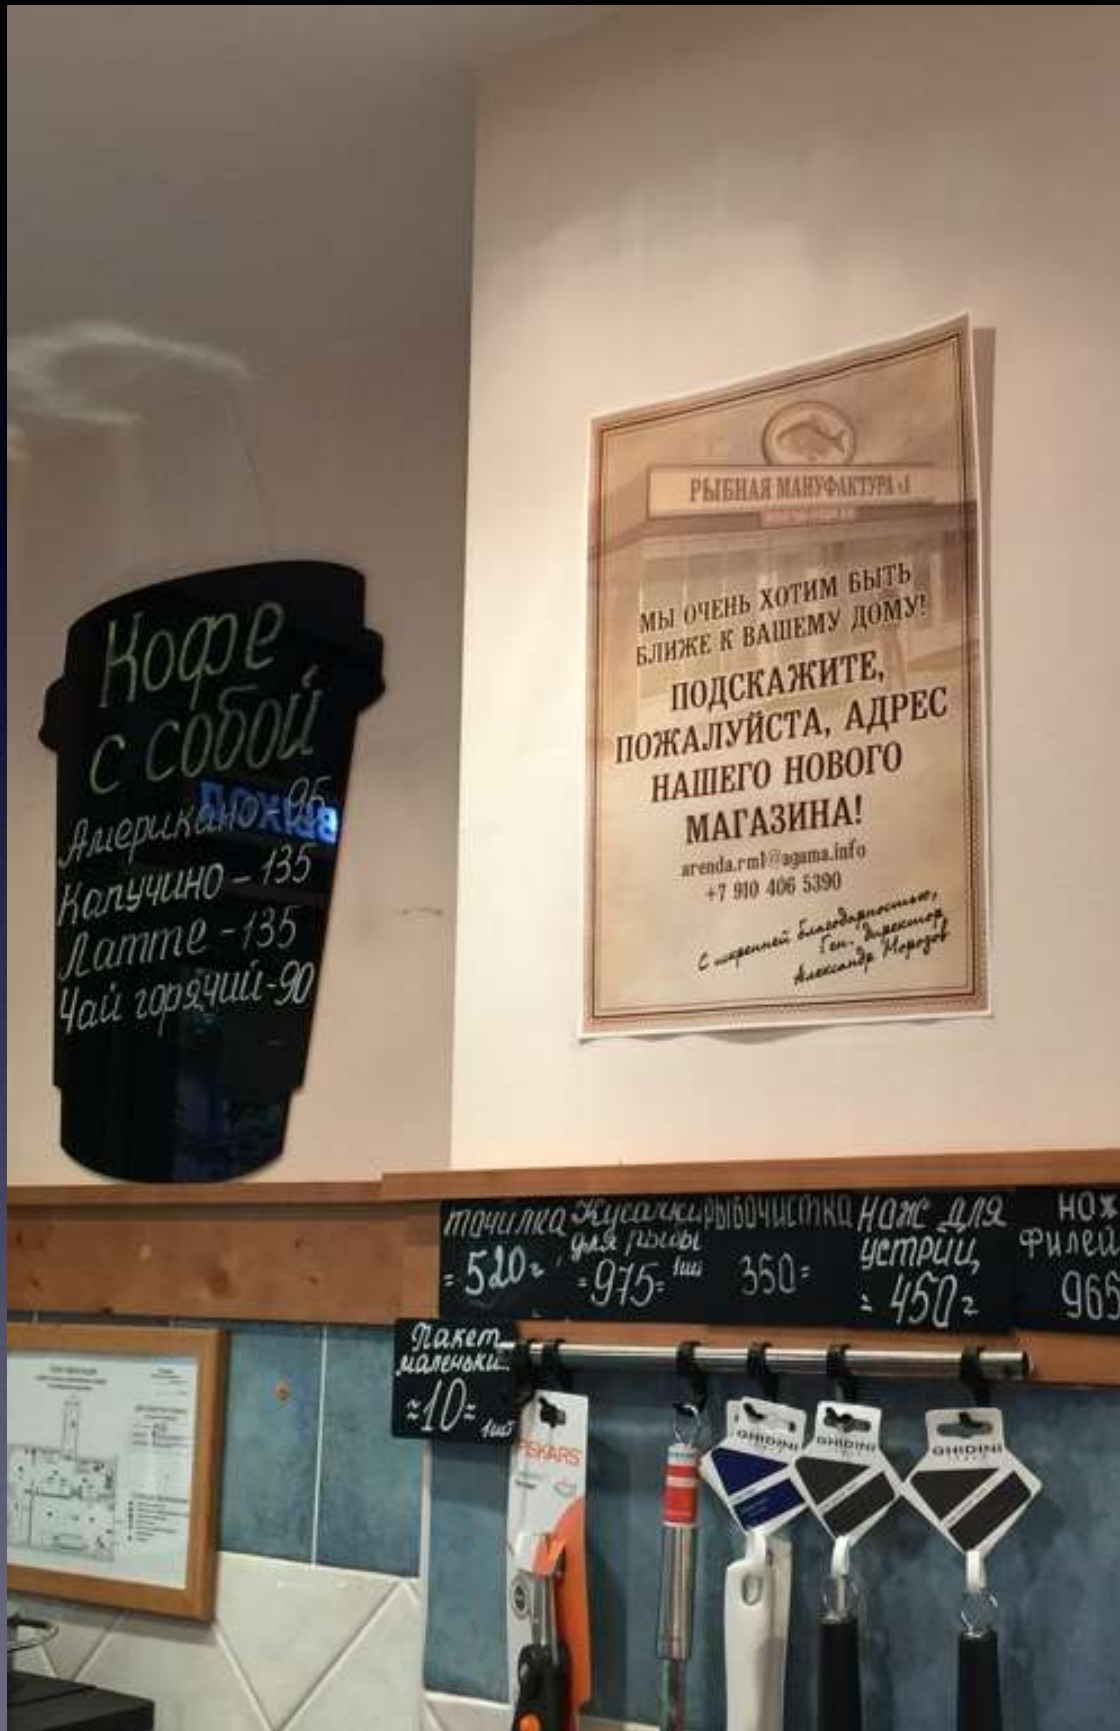 Кофе
с собой
Американо - 95
Капучино - 135
Латте - 135
Чай горячий - 90
РЫБНАЯ МАНУФАКТУРА №1
МЫ ОЧЕНЬ ХОТИМ БЫТЬ
БЛИЖЕ К ВАШЕМУ ДОМУ!
ПОДСКАЖИТЕ,
ПОЖАЛУЙСТА, АДРЕС
НАШЕГО НОВОГО
МАГАЗИНА!
arenda.rm1@agama.info
+7 910 406 5390
С искренней благодарностью,
Ген. Директор
Александр Морозов
точилка
= 520=
Кусачки
для рыбы
= 975= 1шт
рыбочистка
350=
Нож для
устриц
= 450=
нож
филей
965
Пакет
маленьки
=10= 1шт
FISKARS
GHIDINI
GHIDINI
GHIDINI